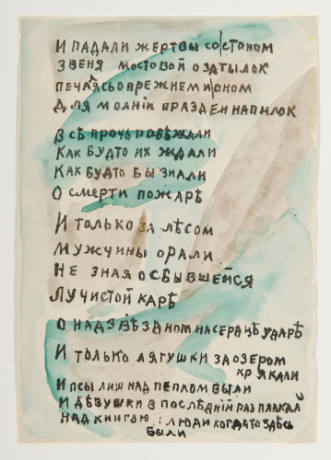 И ПАДАЛИ ЖЕРТВЫ СО СТОНОМ
ЗВЕНЯ МОСТОВОЙ О ЗАТЫЛОК
ПЕЧАЛЯСЬ О ПРЕЖНЕМ ИОНОМ
ДЛЯ МОЛНІЙ ПРАЗДЕН НАПЫЛОК
ВСѢ ПРОЧЬ ПОБѢЖАЛИ
КАК БУДТО ИХ ЖДАЛИ
КАК БУДТО БЫ ЗНАЛИ
О СМЕРТИ ПОЖАРѢ
И ТОЛЬКО ЗА ЛѢСОМ
МУЖЧИНЫ ОРАЛИ
НЕ ЗНАЯ О СБЫВШЕЙСЯ
ЛУЧИСТОЙ КАРѢ
О НАДЗВѢЗДНОМ НА СЕРДЦѢ УДАРѢ
И ТОЛЬКО ЛЯГУШКИ ЗА ОЗЕРОМ
КРЯКАЛИ
И ПСЫ ЛИШ НАД ПЕПЛОМ ВЫЛИ
И ДѢВУШКИ В ПОСЛѢДНІЙ РАЗ ПЛАКАЛИ
НАД КНИГОЮ: ЛЮДИ КОГДА ТО ЗДѢСЬ
БЫЛИ